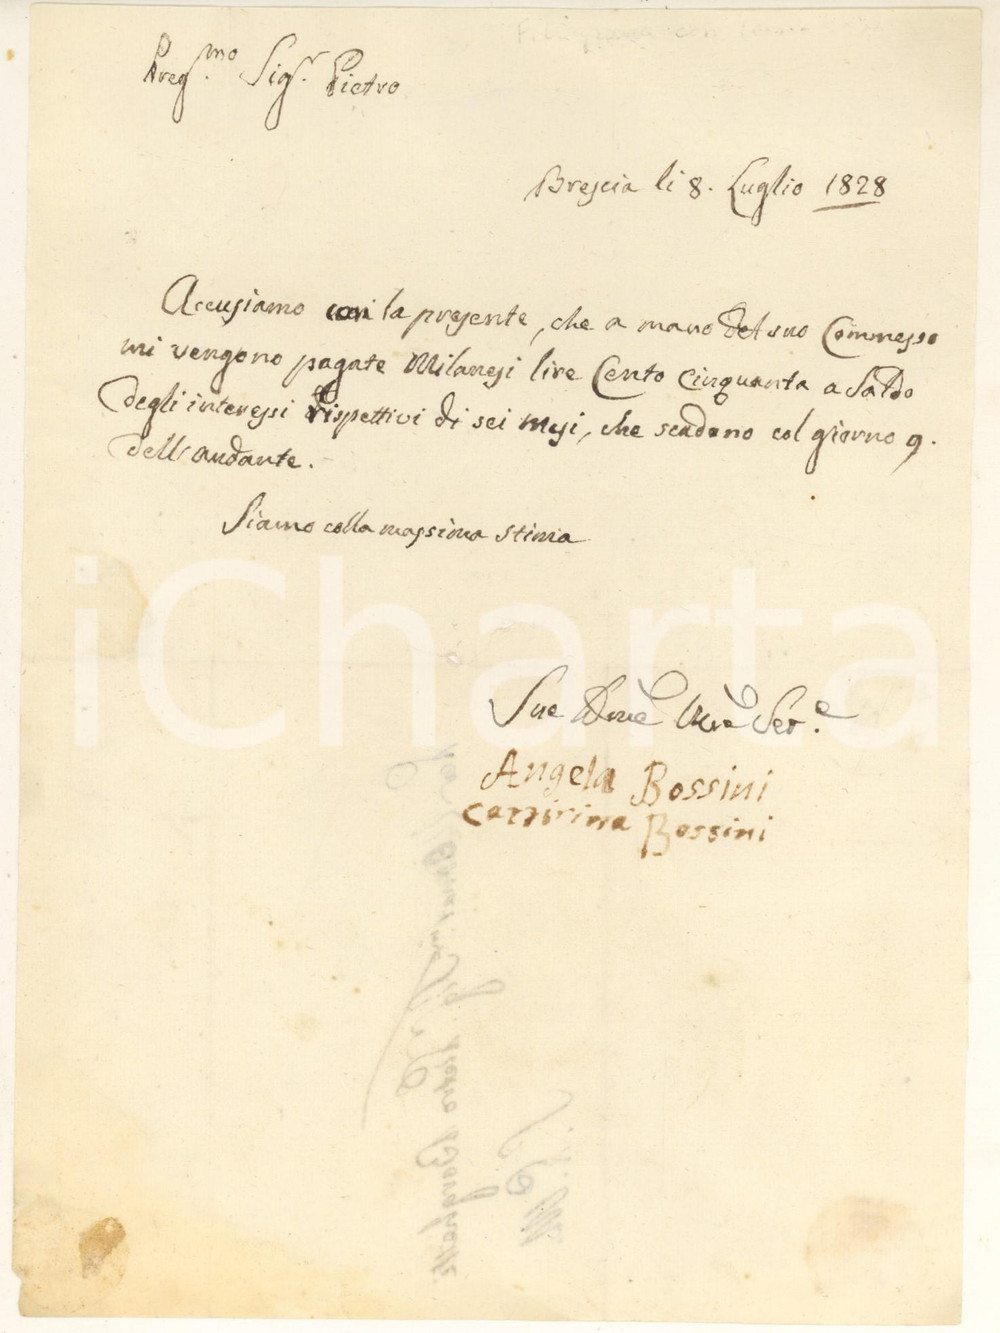 Preg.mo Sig.r Pietro
Brescia li 8. Luglio 1828
Accusiamo con la presente, che a mano del suo Commesso
mi vengono pagate Milanesi lire Cento Cinquanta a Saldo
degli interessi rispettivi di sei mesi, che scadono col giorno 9.
dell'andante.
Siamo colla massima stima
Sue
Angela Bossini
Cattirina Bossini
iCharta